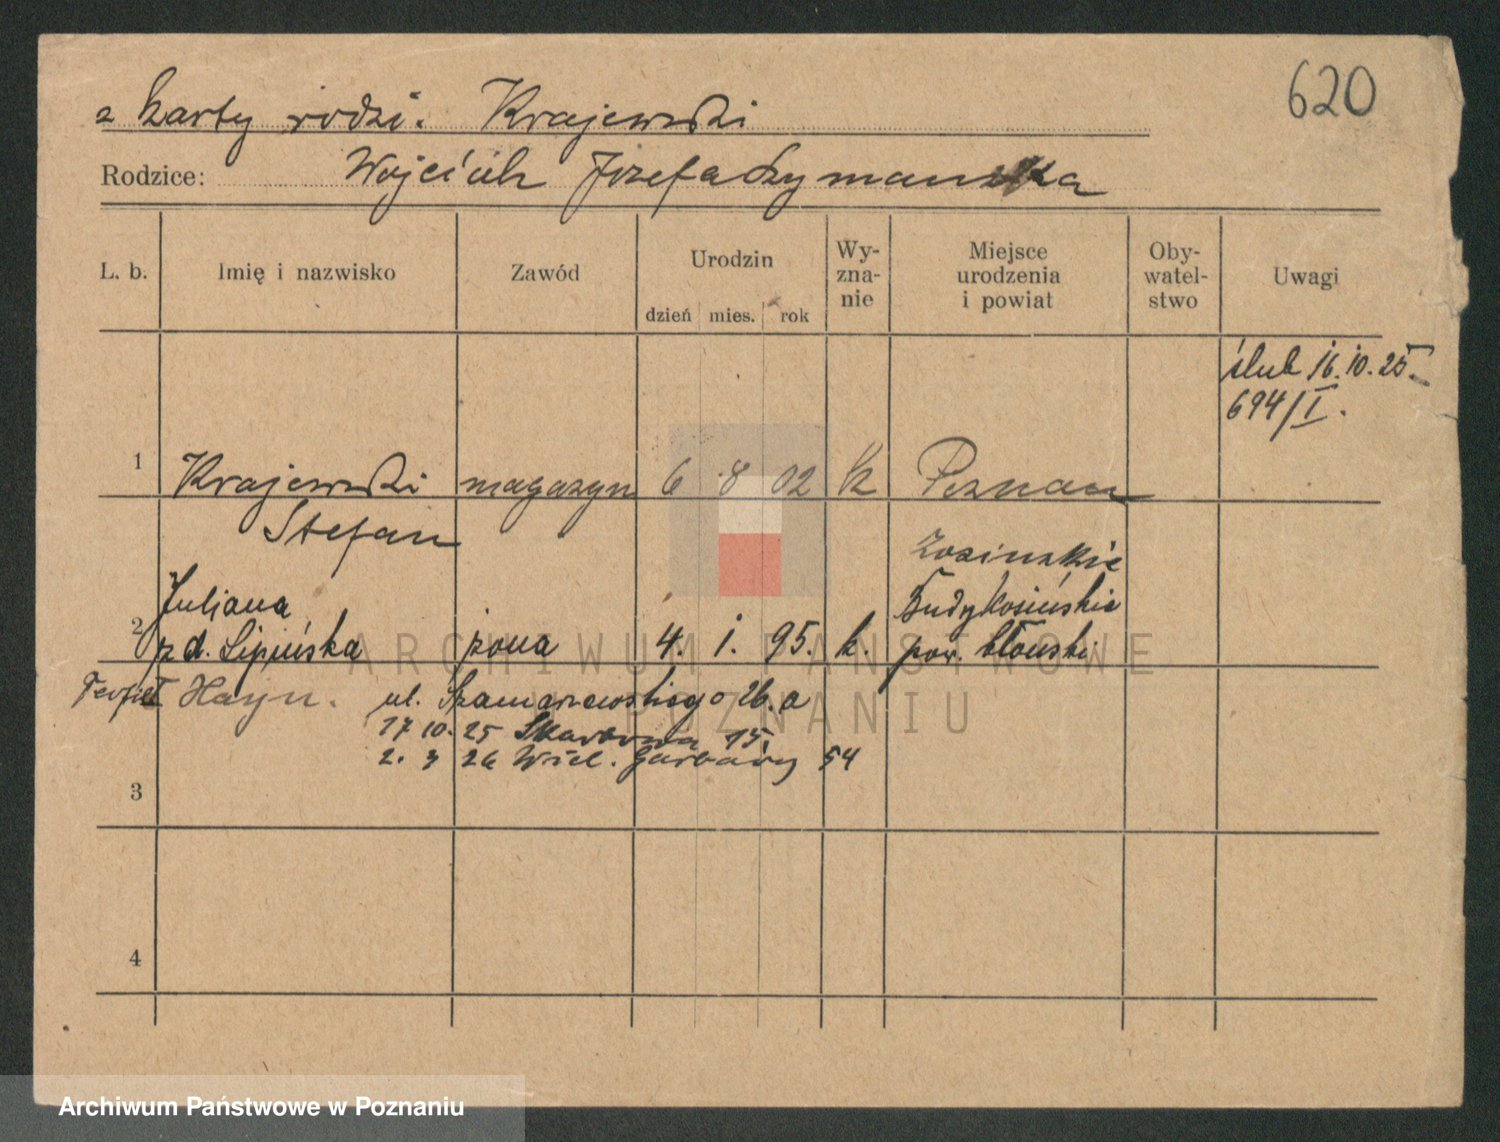 620
z karty rodzi. Krajewski
Rodzice: Wojciech Józefa Szymanska
L. b. Imię i nazwisko Zawód Urodzin Wy-zna-nie Miejsce urodzenia i powiat Oby-watel-stwo Uwagi
dzień mies. rok
ślub 16.10.25.
694/I.
1 Krajewski magazyn 6 8 02 k Poznan
Stefan
Juljana Budy Kosińskie
2 zd. Lipińska żona 4. 1. 95. k. pow. błoński
Hayn. ul. Szamarzewskiego 26.a
17 10. 25 Skarbowa 15.
2. 3 26 Wiel. Garbary 54
3
4
ARCHIWUM PAŃSTWOWE
W POZNANIU
Archiwum Państwowe w Poznaniu